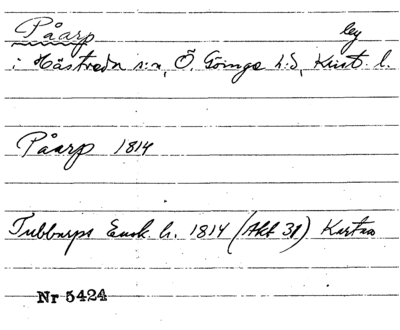 Påarp
by
i Hästveda s:n, Ö. Göinge h:d, Krist. l.
Påarp 1814
Tubbarps Ensk. h. 1814 (Akt 31) Kartan
Nr 5424